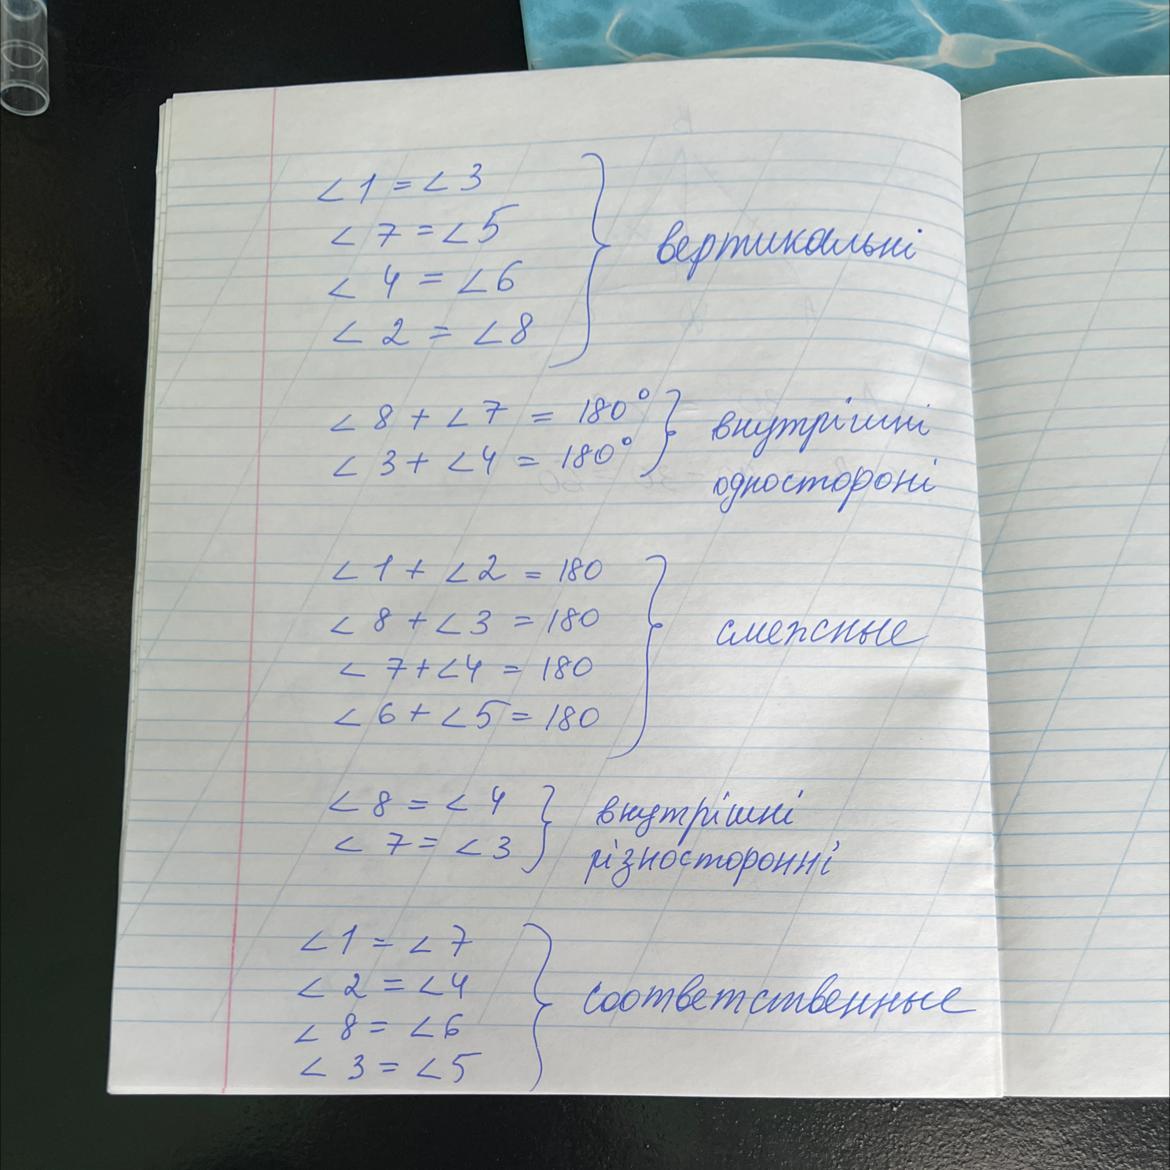 ∠1 = ∠3
∠7 = ∠5
∠4 = ∠6
∠2 = ∠8
вертикальні
∠8 + ∠7 = 180°
∠3 + ∠4 = 180°
внутрішні
одностороні
∠1 + ∠2 = 180
∠8 + ∠3 = 180
∠7 + ∠4 = 180
∠6 + ∠5 = 180
смежные
∠8 = ∠4
∠7 = ∠3
внутрішні
різносторонні
∠1 = ∠7
∠2 = ∠4
∠8 = ∠6
∠3 = ∠5
соответственные